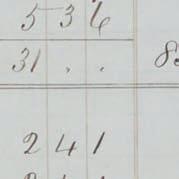 5 3 6
31 . . 8
2 4 1